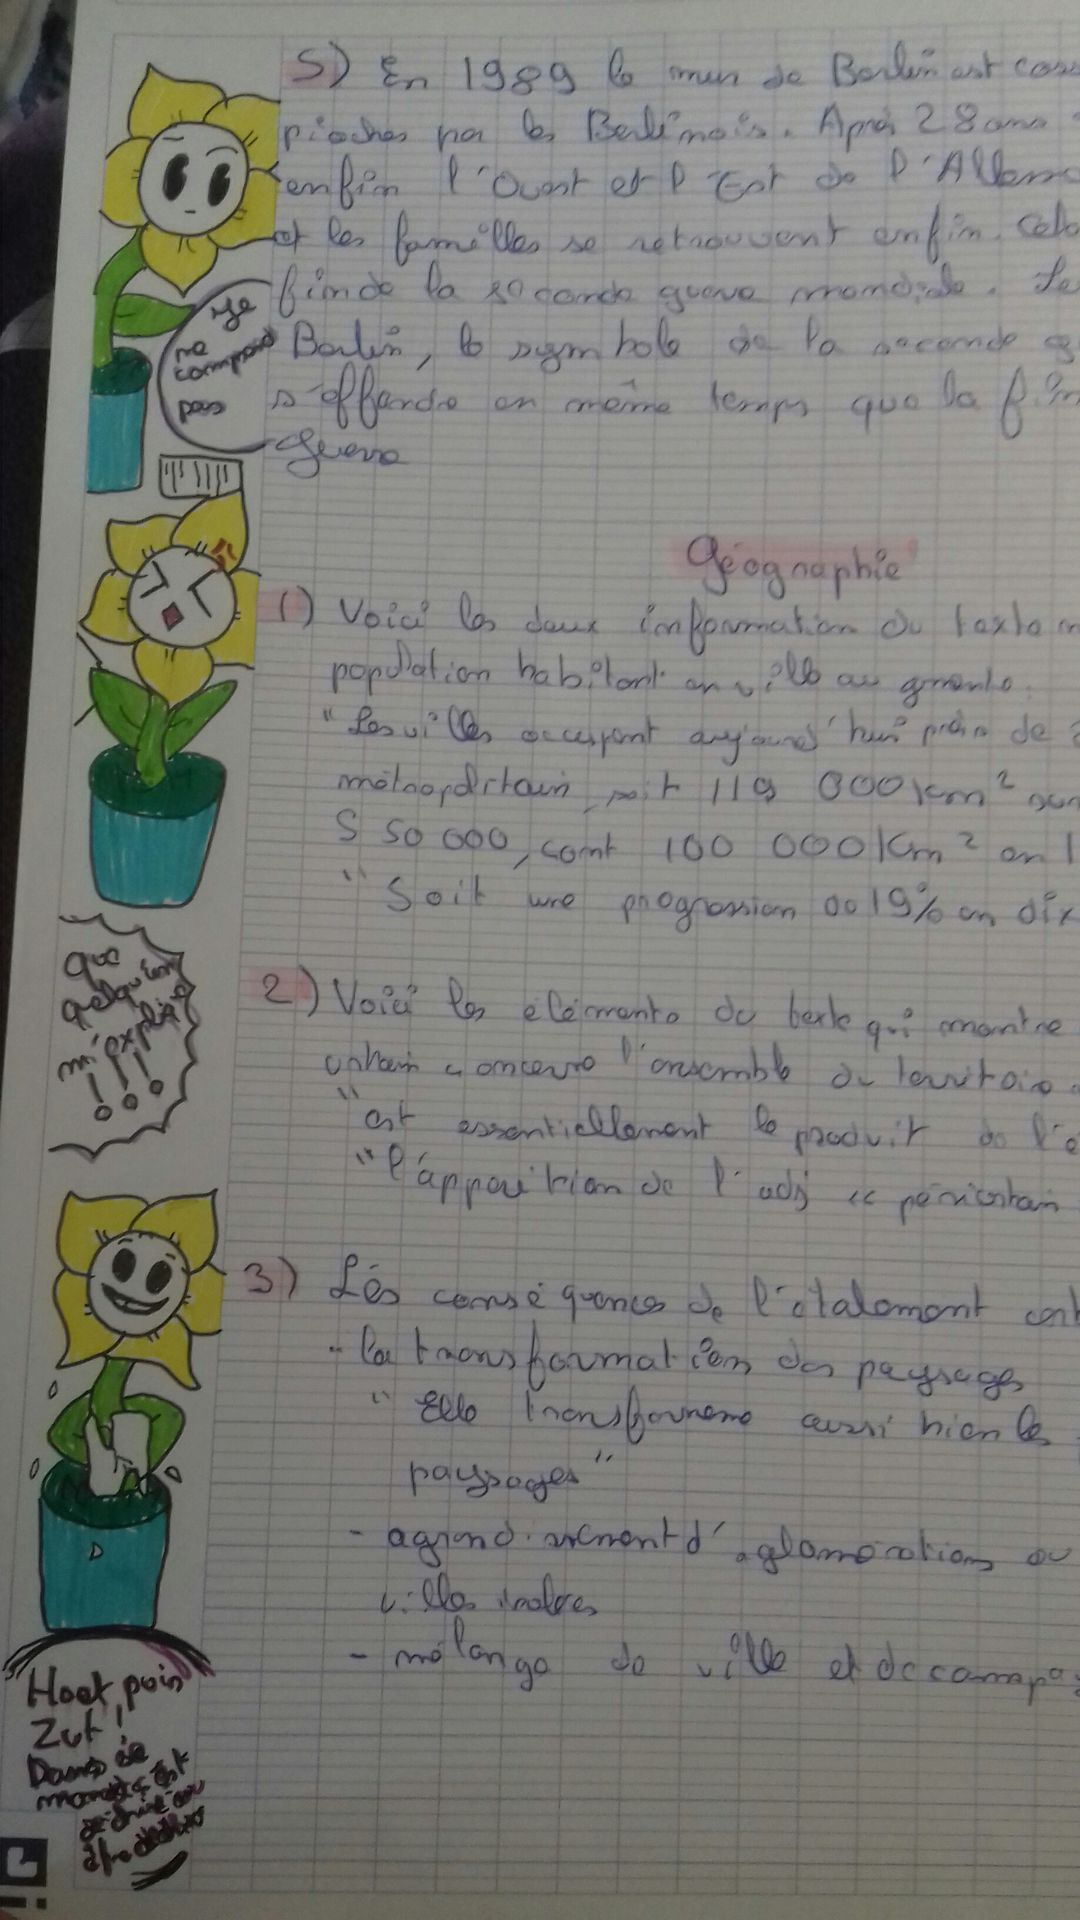 5) En 1989 le mur de Berlin est cass
pioches par les Berlinois. Après 28 ans
enfin l'Ouest et l'Est de l'Allema
et les familles se retrouvent enfin. Cela
fin de la seconde guerre mondiale. Le
Berlin, le symbole de la seconde g
s'effondre en même temps que la fin
guerre
Je
ne
comprend
pas
Géographie
1) Voici les deux information du texte m
population habitant en ville augmente.
"Les villes occupent aujourd'hui près de 2
métropolitain, soit 119 000 km² sur
550 000, cont 100 000 Km² en 1
"Soit une progression de 19% en dix
que
quelqu'un
m'explique
!!!
2) Voici les éléments du texte qui montre
urbain concerne l'ensemble du territoire
"est essentiellement le produit de l'e
"l'apparition de l'adj "périurbain
3) Lés conséquences de l'étalement cont
- la transformation des paysages
"Elle transforme aussi bien les
paysages"
- agrandissement d'aglomérations ou
villes
- mélange de ville et de campa
Hoek, puis
Zut!
Dans ce
monde c'est